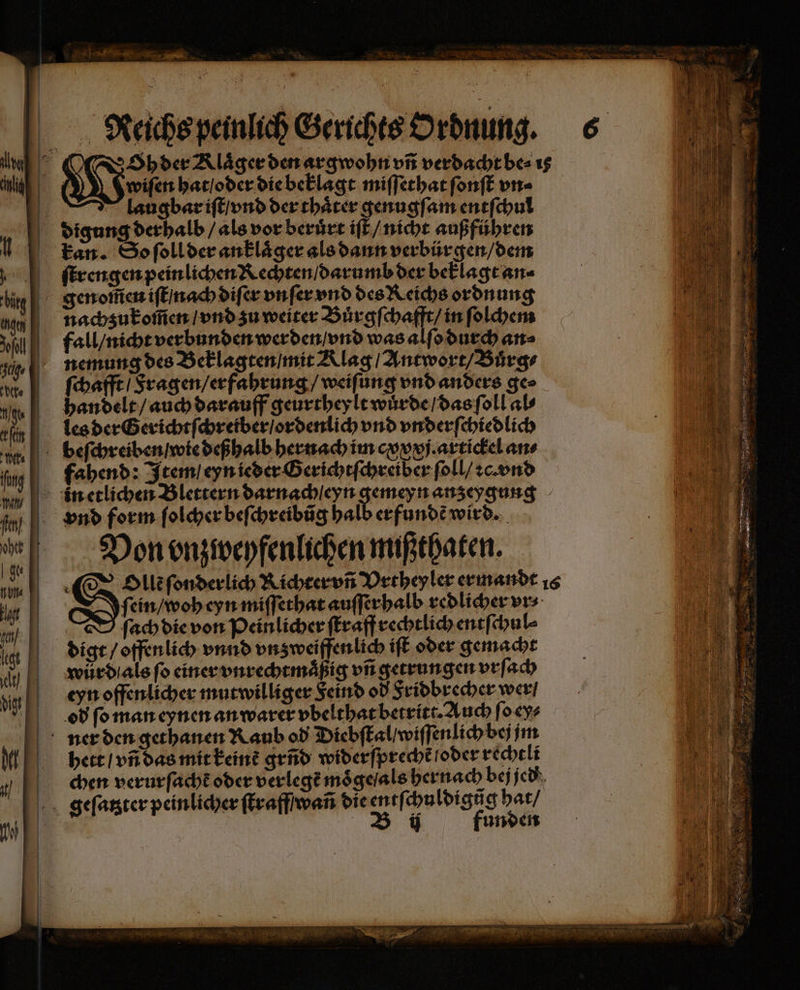 Reichs peinlich Gerichts Ordnung. 6
WOh der Klåger den argwohn vñ verdacht be⸗ 15
wiſen hat/oder die beklagt miſſethat ſonſt vn⸗
laugbar iſt/vnd der thåter genugſam entſchul
digung derhalb/als vor berůrt iſt/nicht außführen
kan. So ſoll der anklåger als dann verbürgen/dem
ſtrengen peinlichen Rechten/darumb der beklagt an⸗
genom̃en iſt/nach diſer vnſer vnd des Reichs ordnung
nachzukom̃en/vnd zu weiter Bürgſchafft/in ſolchem
fall/nicht verbunden werden/vnd was alſo durch an⸗
nemung des Beklagten/mit Klag/Antwort/Bürg⸗
ſchafft/Fragen/erfahrung/weiſung vnd anders ge⸗
handelt/auch darauff geurtheylt würde/das ſoll al⸗
les der Gerichtſchreiber/ordenlich vnd vnderſchiedlich
beſchreiben/wie deßhalb hernach im cxxxj. artickel an⸗
fahend: Item/eyn ieder Gerichtſchreiber ſoll/ꝛc. vnd
in etlichen Blettern darnach/eyn gemeyn anzeygung
vnd form ſolcher beſchreibũg halb erfundẽ wird.
Von vnzweyfenlichen mißthaten.
SOllẽ ſonderlich Richter vñ Vrtheyler ermandt 16
ſein/woh eyn miſſethat auſſerhalb redlicher vr⸗
ſach die von Peinlicher ſtraff rechtlich entſchul⸗
digt/offenlich vnnd vnzweiffenlich iſt oder gemacht
würd/als ſo einer vnrechtmåßig vñ getrungen vrſach
eyn offenlicher mutwilliger Feind od Fridbrecher wer/
od ſo man eynen an warer vbelthat betritt. Auch ſo ey⸗
ner den gethanen Raub od Diebſtal/wiſſenlich bej jm
hett/vñ das mit keinẽ grñd widerſprechẽ/oder rechtli
chen verurſachẽ oder verlegẽ möge/als hernach bej jed
geſatzter peinlicher ſtraff/wañ die entſchuldigũg hat/
B ij funden